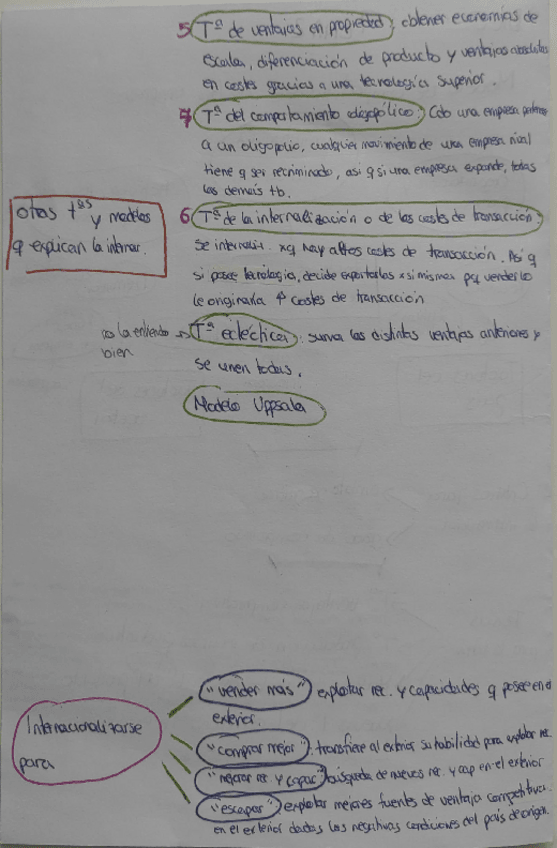 5 Tª de ventajas en propiedad: obtener economías de
escala, diferenciación de producto y ventajas absolutas
en costes gracias a una tecnología superior.
7 Tª del comportamiento oligopólico: Cdo una empresa pertenece
a un oligopolio, cualquier movimiento de una empresa rival
tiene q ser recriminado, asi q si una empresa expande, todas
las demais tb.
otras tªs y modelos
q explican la internac.
6 Tª de la internalización o de los costes de transacción:
se internaliz. xq hay altos costes de transacción. Asi q
si posee tecnologia, decide exportarlas x si misma pq venderlo
le originaría ↑ costes de transacción
no la entiendo → Tª ecléctica: suma las distintas ventajas anteriores y
bien
se unen todas.
Modelo Uppsala
Internacionalizarse
para
"vender más" explotar rec. y capacidades q posee en el
exterior.
"comprar mejor": transfiere al exterior su habilidad para explotar rec.
"mejorar rec. y capac" búsqueda de nuevos rec. y cap en el exterior
"escapar" explotar mejores fuentes de ventaja competitiva
en el exterior dadas las negativas condiciones del país de origen.